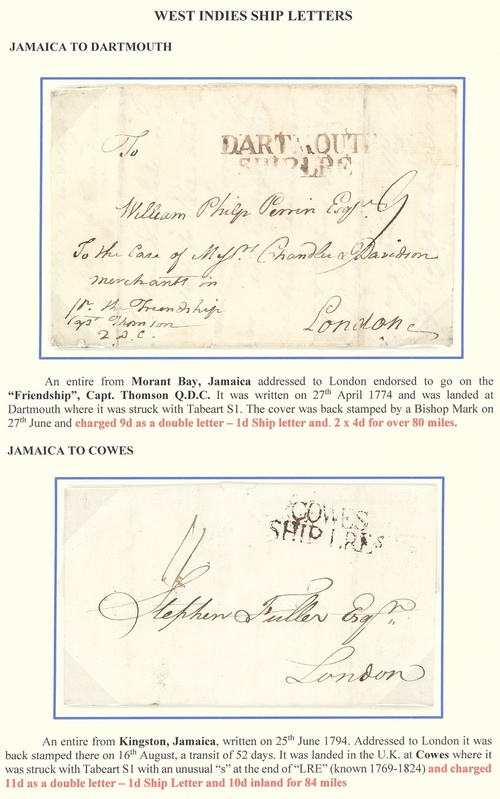 WEST INDIES SHIP LETTERS
JAMAICA TO DARTMOUTH
To
DARTMOUTH
SHIP LRE
William Philp Perrin Esqr
9
To the Care of Messrs Chandler & Davidson
merchants in
pr. the Friendship
Capt Thomson
Q.D.C.
London
An entire from Morant Bay, Jamaica addressed to London endorsed to go on the
“Friendship”, Capt. Thomson Q.D.C. It was written on 27th April 1774 and was landed at
Dartmouth where it was struck with Tabeart S1. The cover was back stamped by a Bishop Mark on
27th June and charged 9d as a double letter – 1d Ship letter and. 2 x 4d for over 80 miles.
JAMAICA TO COWES
COWES
SHIP LREs
11
Stephen Fuller Esqr
London
An entire from Kingston, Jamaica, written on 25th June 1794. Addressed to London it was
back stamped there on 16th August, a transit of 52 days. It was landed in the U.K. at Cowes where it
was struck with Tabeart S1 with an unusual “s” at the end of “LRE” (known 1769-1824) and charged
11d as a double letter – 1d Ship Letter and 10d inland for 84 miles